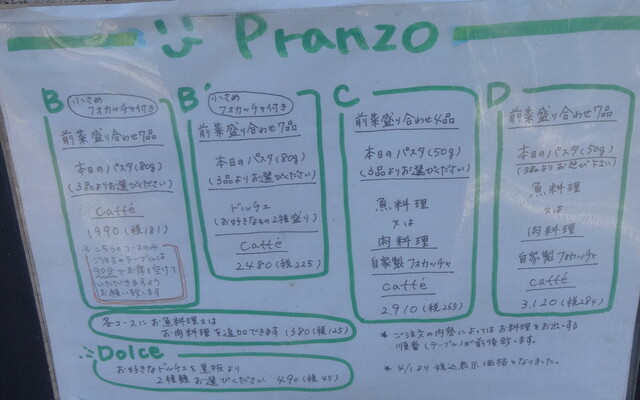 Pranzo
B 小さめフォカッチャ付き
前菜盛り合わせ7品
本日のパスタ(80g)
(3品よりお選びください)
Caffé
1990(税181)
※こちらのコースのみ
ご注文のテーブルは
90分でお席を空けて
いただきますよう
お願い致します
B' 小さめフォカッチャ付き
前菜盛り合わせ7品
本日のパスタ(80g)
(3品よりお選びください)
ドルチェ
(お好きなもの2種盛り)
Caffé
2480(税225)
C
前菜盛り合わせ4品
本日のパスタ(50g)
(3品よりお選びください)
魚料理
又は
肉料理
自家製フォカッチャ
Caffé
2910(税265)
D
前菜盛り合わせ7品
本日のパスタ(50g)
(3品よりお選び下さい)
魚料理
又は
肉料理
自家製フォカッチャ
Caffé
3120(税284)
各コースにお魚料理又は
お肉料理を追加できます(税125)
Dolce
お好きなドルチェを黒板より
2種類お選びください 490(税45)
* ご注文の内容によってはお料理をお出しする
順番(テーブル)が前後致します。
* 4/1より税込表示価格となりました。